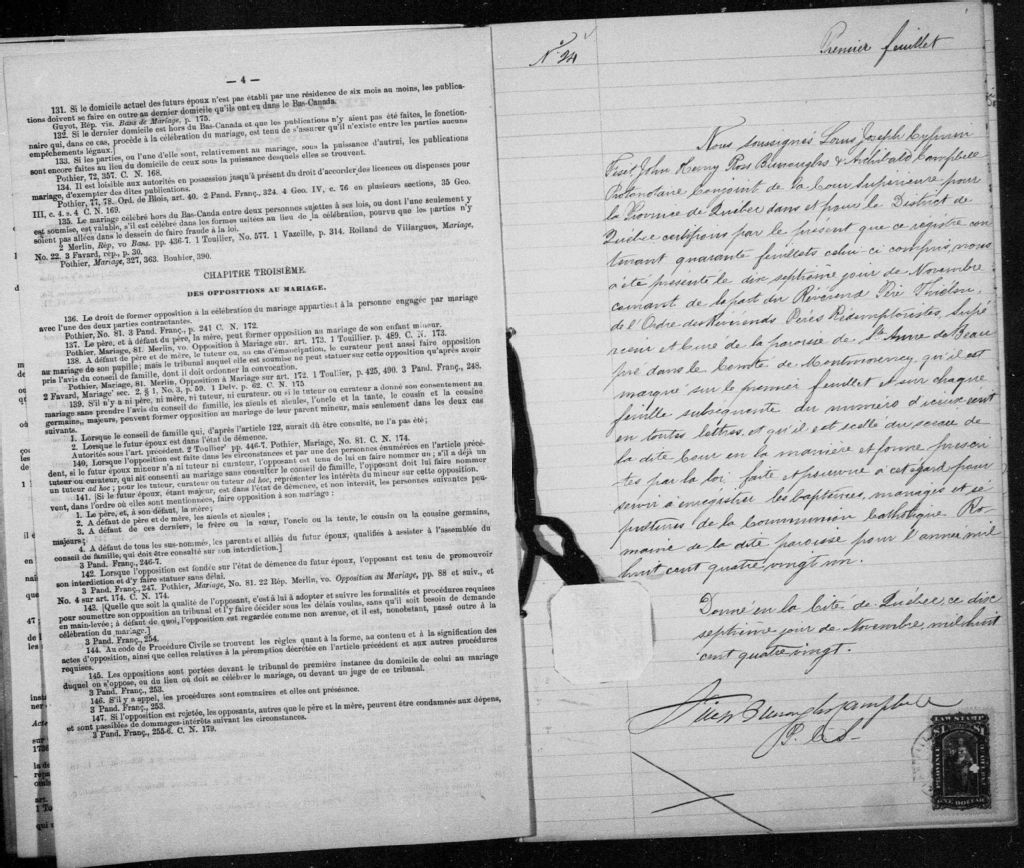 — 4 —
131. Si le domicile actuel des futurs époux n'est pas établi par une résidence de six mois au moins, les publica-
tions doivent se faire en outre au dernier domicile qu'ils ont eu dans le Bas-Canada.
Guyot, Rép. vis. Bans de Mariage, p. 175.
132. Si le dernier domicile est hors du Bas-Canada et que les publications n'y aient pas été faites, le fonction-
naire qui, dans ce cas, procède à la célébration du mariage, est tenu de s'assurer qu'il n'existe entre les parties aucuns
empêchements légaux.]
133. Si les parties, ou l'une d'elle sont, relativement au mariage, sous la puissance d'autrui, les publications
sont encore faites au lieu du domicile de ceux sous la puissance desquels elles se trouvent.
Pothier, 72, 357. C. N. 168.
134. Il est loisible aux autorités en possession jusqu'à présent du droit d'accorder des licences ou dispenses pour
mariage, d'exempter des dites publications.
Pothier, 77, 78. Ord. de Blois, art. 40. 2 Pand. Franç., 324. 4 Geo. IV, c. 76 en plusieurs sections, 35 Geo.
III, c. 4. s. 4 C. N. 169.
135. Le mariage célébré hors du Bas-Canda entre deux personnes sujettes à ses lois, ou dont une seulement y
est soumise, est valable, s'il est célébré dans les formes usitées au lieu de la célébration, pourvu que les parties n'y
soient pas allées dans le dessein de faire fraude à la loi.
2 Merlin, Rép, vo Bans. pp. 436-7. 1 Toulier, No. 577. 1 Vazeille, p. 314. Rolland de Villargues, Mariage,
No. 22. 3 Favard, rép., p. 30.
Pothier, Mariage, 327, 363. Bouhier, 390.
CHAPITRE TROISIÈME.
DES OPPOSITIONS AU MARIAGE.
136. Le droit de former opposition à la célébration du mariage appartient à la personne engagée par mariage
avec l'une des deux parties contractantes.
Pothier, No. 81. 3 Pand. Franç., p. 241 C. N. 172.
137. Le père, et à défaut du père, la mère, peut former opposition au mariage de son enfant mineur.
Pothier, Mariage, 81. Merlin, vo. Opposition à Mariage sur. art. 173. 1 Touillier. p. 489. C. N. 173.
138. A défaut de père et de mère, le tuteur ou, au cas d'émancipation, le curateur peut aussi faire opposition
au mariage de son pupille; mais le tribunal auquel elle est soumise ne peut statuer sur cette opposition qu'après avoir
pris l'avis du conseil de famille, dont il doit ordonner la convocation.
Pothier, Mariage, 81. Merlin, Opposition à Mariage sur art, 172. 1 Toulier, p. 425, 490. 3 Pand. Franç., 248.
2 Favard, Mariage' sec. 2. § 1, No. 3, p. 59. 1 Delv. p. 62. C. N. 175
139. S'il n'y a ni père, ni mère, ni tuteur, ni curateur, ou si le tuteur ou curateur a donné son consentement au
mariage sans prendre l'avis du conseil de famille, les aïeuls et aïeules, l'oncle et la tante, le cousin et la cousine
germains, majeurs, peuvent former opposition au mariage de leur parent mineur, mais seulement dans les deux cas
suivants.
1. Lorsque le conseil de famille qui, d'après l'article 122, aurait dû être consulté, ne l'a pas été;
2. Lorsque le futur époux est dans l'état de démence.
Autorités sous l'art. précédent. 2 Toullier' pp. 446-7. Pothier, Mariage, No. 81. C. N. 174.
140, Lorsque l'opposition est faite dans les circonstances et par une des personnes énumérées en l'article précé-
dent, si le futur époux mineur n'a ni tuteur ni curateur, l'opposant est tenu de lui en faire nommer un; s'il a déjà un
tuteur ou curateur, qui ait consenti au mariage sans consulter le conseil de famille, l'opposant doit lui faire nommer
un tuteur ad hoc; pour les tuteur, curateur ou tuteur ad hoc, représenter les intérêts du mineur sur cette opposition.
141. [Si le futur époux, étant majeur, est dans l'état de démence, et non interdit, les personnes suivantes peu-
vent, dans l'ordre où elles sont mentionnées, faire opposition à son mariage :
1. Le père, et, à son défaut, la mère;
2. A défaut de père et de mère, les aïeuls et aïeules;
3. A défaut de ces derniers, le frère ou la sœur, l'oncle ou la tente, le cousin ou la cousine germains,
majeurs;
4. A défaut de tous les sus-nommés, les parents et alliés du futur époux, qualifiés à assister à l'assemblée du
conseil de famille, qui doit être consulté sur son interdiction.]
3 Pand. Franç., 246-7.
142. Lorsque l'opposition est fondée sur l'état de démence du futur époux, l'opposant est tenu de promouvoir
son interdiction et d'y faire statuer sans délai.
3 Pand. Franç., 247. Pothier, Mariage, No. 81. 22 Rép. Merlin, vo. Opposition au Mariage, pp. 88 et suiv., et
No. 4 sur art. 174. C. N. 174.
143. [Quelle que soit la qualité de l'opposant, c'est à lui à adopter et suivre les formalités et procédures requises
pour soumettre son opposition au tribunal et l'y faire décider sous les délais voulus, sans qu'il soit besoin de demande
en main-levée; à défaut de quoi, l'opposition est regardée comme non avenue, et il est, nonobstant, passé outre à la
célébration du mariage.]
3 Pand. Franç., 254.
144. Au code de Procédure Civile se trouvent les règles quant à la forme, au contenu et à la signification des
actes d'opposition, ainsi que celles relatives à la péremption décrétée en l'article précédent et aux autres procédures
requises.
145. Les oppositions sont portées devant le tribunal de première instance du domicile de celui au mariage
duquel on s'oppose, ou du lieu où doit se célébrer le mariage, ou devant un juge de ce tribunal.
3 Pand. Franç., 253.
146. S'il y a appel, les procédures sont sommaires et elles ont préséance.
3 Pand. Franç., 253.
147. Si l'opposition est rejetée, les opposants, autres que le père et la mère, peuvent être condamnés aux dépens,
et sont passibles de dommages-intérêts suivant les circonstances.
3 Pand. Franç., 255-6. C. N. 179.
No 24
Premier feuillet
Nous soussignés Louis Joseph Cyprien
Fiset John Henry Ross Burroughs & Archibald Campbell
Protonotaire Conjoint de la Cour Supérieure pour
la Province de Québec dans et pour le District de
Québec certifions par le présent que ce registre con
tenant quarante feuillets celui-ci compris, nous
a été présenté le dix septième jour de Novembre
courant de la part du Révérend Père
de l'Ordre des Révérends Pères Rédemptoristes, Supé
rieur et Curé de la paroisse de Ste Anne de Beau
pré dans le Comté de Montmorency, qu'il est
marqué sur le premier feuillet et sur chaque
feuille subséquente du numéro d'iceux écrit
en toutes lettres, et qu'il est scellé du sceau de
la dite Cour en la manière et forme prescri
tes par la loi, faite et pourvue à cet égard pour
servir à enregistrer les baptêmes, mariages et sé
pultures de la Communion Catholique Ro
maine de la dite paroisse pour l'année mil
huit cent quatre vingt un.
Donné en la Cité de Québec, ce dix
septième jour de Novembre mil huit
cent quatre vingt.
Fiset Burroughs Campbell
P. C. S.
LAW STAMP
$1
$1
PROVINCE
QUEBEC
ONE DOLLAR